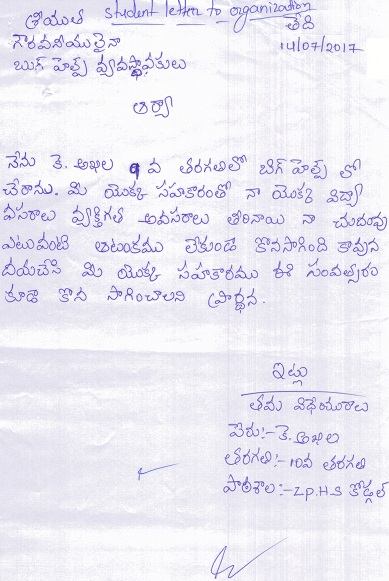 student letter to organization
శ్రీయుత
తేది
గౌరవనీయులైనా
14/07/2017
బుగ్ హెల్ప్ వ్యవస్థాపకులు
ఆర్యా
నేను కె. అఖిల 9 వ తరగతిలో బిగ్ హెల్ప్ లో
చేరాను. మీ యొక్క సహకారంతో నా యొక్క విద్యా
వసరాలు వ్యక్తిగత అవసరాలు తీరినాయి నా చదువు
ఎటువంటి ఆటంకము లేకుండ కొనసాగింది కావున
దయచేసి మీ యొక్క సహకారము ఈ సంవత్సరం
కూడ కొన సాగించాలని ప్రార్థన.
ఇట్లు
తమ విధేయురాలు
పేరు:- కె. అఖిల
తరగతి:- 10వ తరగతి
పాఠశాల:- Z.P.H.S కోడ్గల్